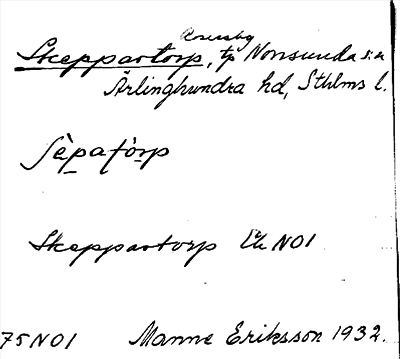 Skeppartorp, tp Norrsunda sn
Ärlinghundra hd, Sthlms l.
Sè̱pató̱rp
Skeppartorp Lk NO1
75 NO1 Manne Eriksson 1932.